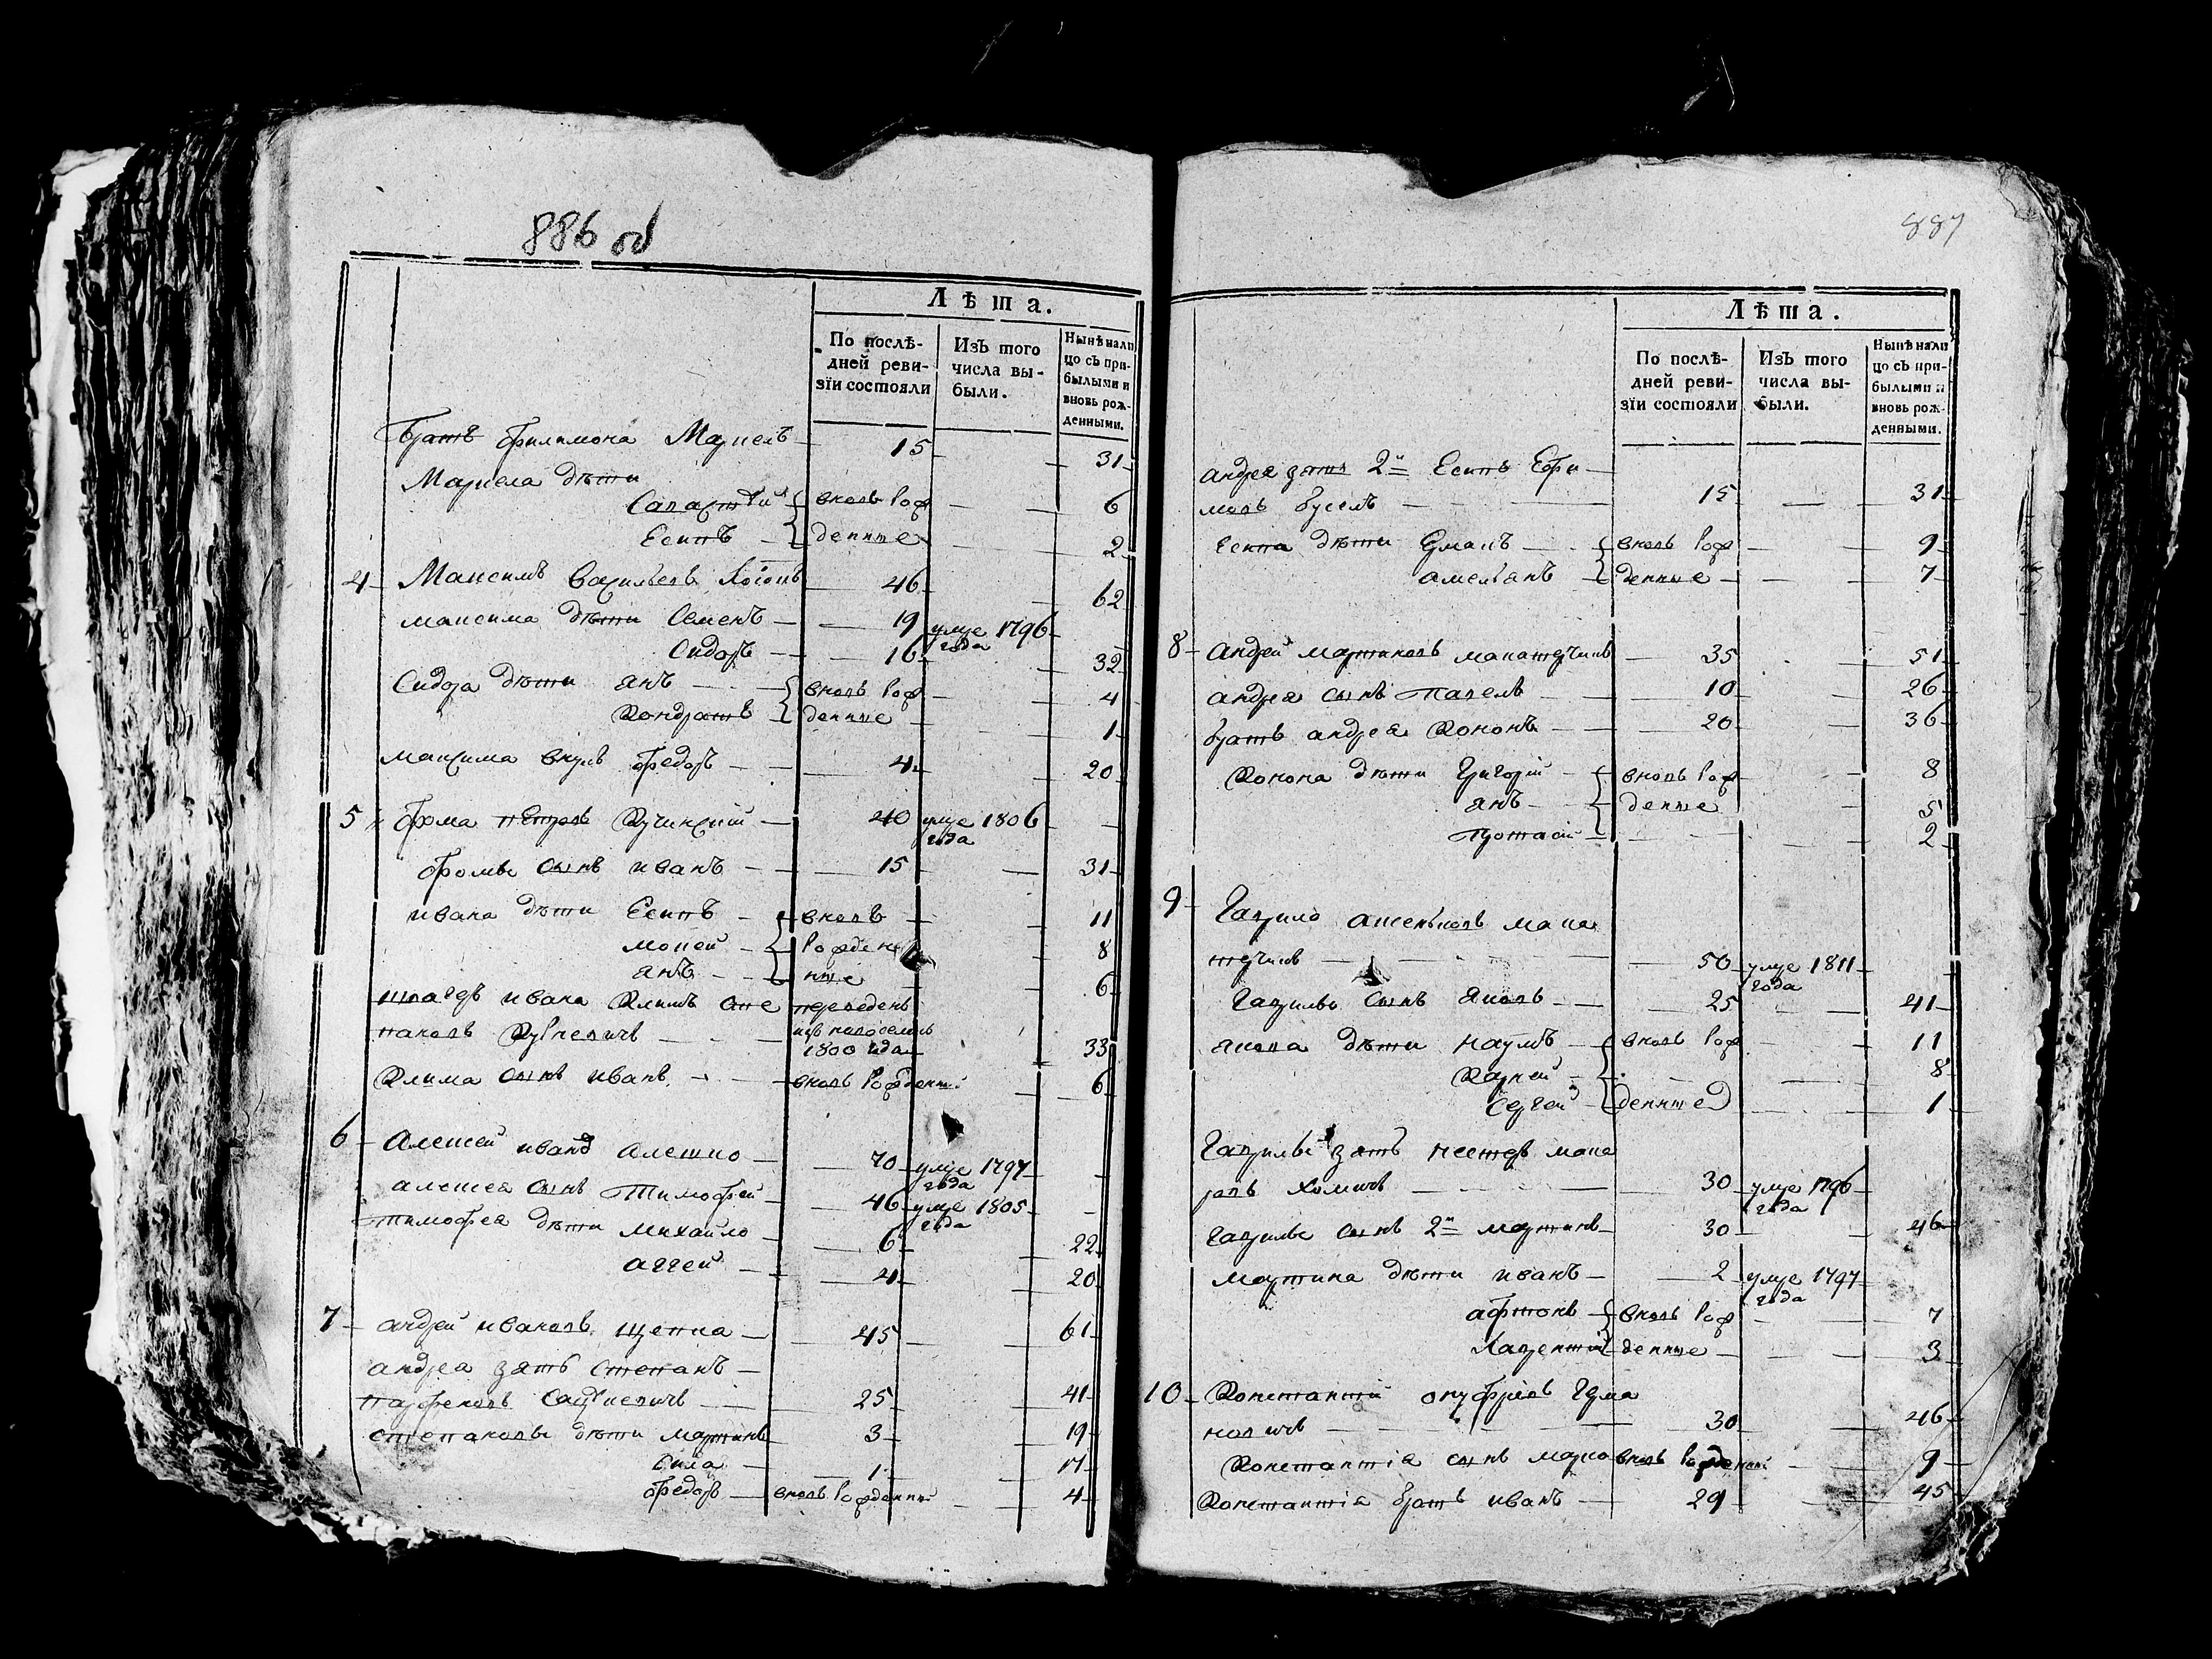 886 об
Лѣта.
По послѣ-
дней реви-
зіи состояли
Изъ того
числа вы-
были.
Нынѣ нали
цо съ при-
былыми и
вновь рож-
денными.
Братъ Филимона Марцель 15 31
Марцела дѣти
вновь рож 6
Есипъ денные 2
4 Максимъ Васильевъ 46 62
Максима дѣти Семенъ 19 умре 1796
года
Сидоръ 16 32
Сидора дѣти Янъ вновь рож 4
Кондратъ денные 1
Максима внукъ Федоръ 4 20
5 Фома Петровъ Кучинский 40 умре 1806
года
Фомы сынъ Иванъ 15 31
Ивана дѣти Есипъ вновь 11
Мокей рожден 8
Янъ ные 6
Швагеръ Ивана Климъ Сте переведенъ
пановъ
1800 года 33
Клима сынъ Иванъ вновь рожденный 6
6 Алексей Иванов Алешко 70 умре 1797
года
Алексея сынъ Тимофей 46 умре 1805
года
Тимофея дѣти Михайло 6 22
Аггей 4 20
7 Андрей Ивановъ Щепка 45 61
Андрея зять Степанъ
Парфеновъ 25 41
Степановы дѣти Мартинъ 3 19
Сила 1 17
Федоръ вновь рожденный 4
887
Лѣта.
По послѣ-
дней реви-
зіи состояли
Изъ того
числа вы-
были.
Нынѣ нали
цо съ при-
былыми и
вновь рож-
денными.
Андрея зять 2й Есипъ Ефи
мовъ Буселъ 15 31
Есипа дѣти вновь рож 9
Амельянъ денные 7
8 Андрей Мартиновъ 35 51
Андрея сынъ Павелъ 10 26
Братъ Андрея Кононъ 20 36
Конона дѣти Григорій вновь рож 8
Янъ денные 5
Протасій 2
9 Гаврило
50 умре 1811
года
Гаврилы сынъ Яковъ 25 41
Якова дѣти Наумъ вновь рож 11
Карней 8
Сергей денные 1
Гаврилы зять Нестеръ Мака
ровъ Хомичъ 30 умре 1796
года
Гаврилы сынъ 2й Мартинъ 30 46
Мартина дѣти Иванъ 2 умре 1797
года
Афтонъ вновь рож 7
Лаврентій денные 3
10 Константій Онуфріевъ Гума
новичъ 30 46
Константія сынъ Марко вновь рожденный 9
Константія братъ Иванъ 29 45